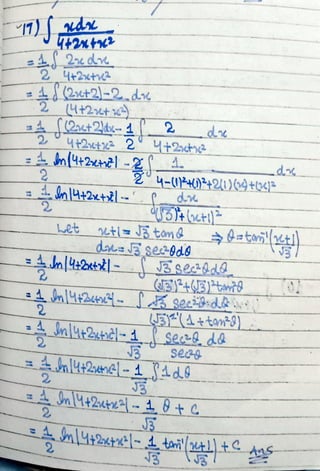 17) ∫ xdx / 4+2x+x²
= 1/2 ∫ 2x dx / 4+2x+x²
= 1/2 ∫ (2x+2)-2 / (4+2x+x²) dx
= 1/2 ∫ (2x+2)dx / 4+2x+x² - 1/2 ∫ 2 / 4+2x+x² dx
= 1/2 ln|4+2x+x²| - 2/2 ∫ 1 / 4-(1)²+(1)²+2(1)(x)+(x)² dx
= 1/2 ln|4+2x+x²| - ∫ dx / (√3)²+(x+1)²
Let x+1 = √3 tanθ ⇒ θ = tan⁻¹(x+1/√3)
dx = √3 sec²θdθ
= 1/2 ln|4+2x+x²| - ∫ √3 sec²θdθ / (√3)²+(√3)²tan²θ
= 1/2 ln|4+2x+x²| - ∫ √3 sec²θ dθ / (√3)²(1+tan²θ)
= 1/2 ln|4+2x+x²| - 1/√3 ∫ sec²θ dθ / sec²θ
= 1/2 ln|4+2x+x²| - 1/√3 ∫ 1 dθ
= 1/2 ln|4+2x+x²| - 1/√3 θ + c
= 1/2 ln|4+2x+x²| - 1/√3 tan⁻¹(x+1/√3) + c Ans